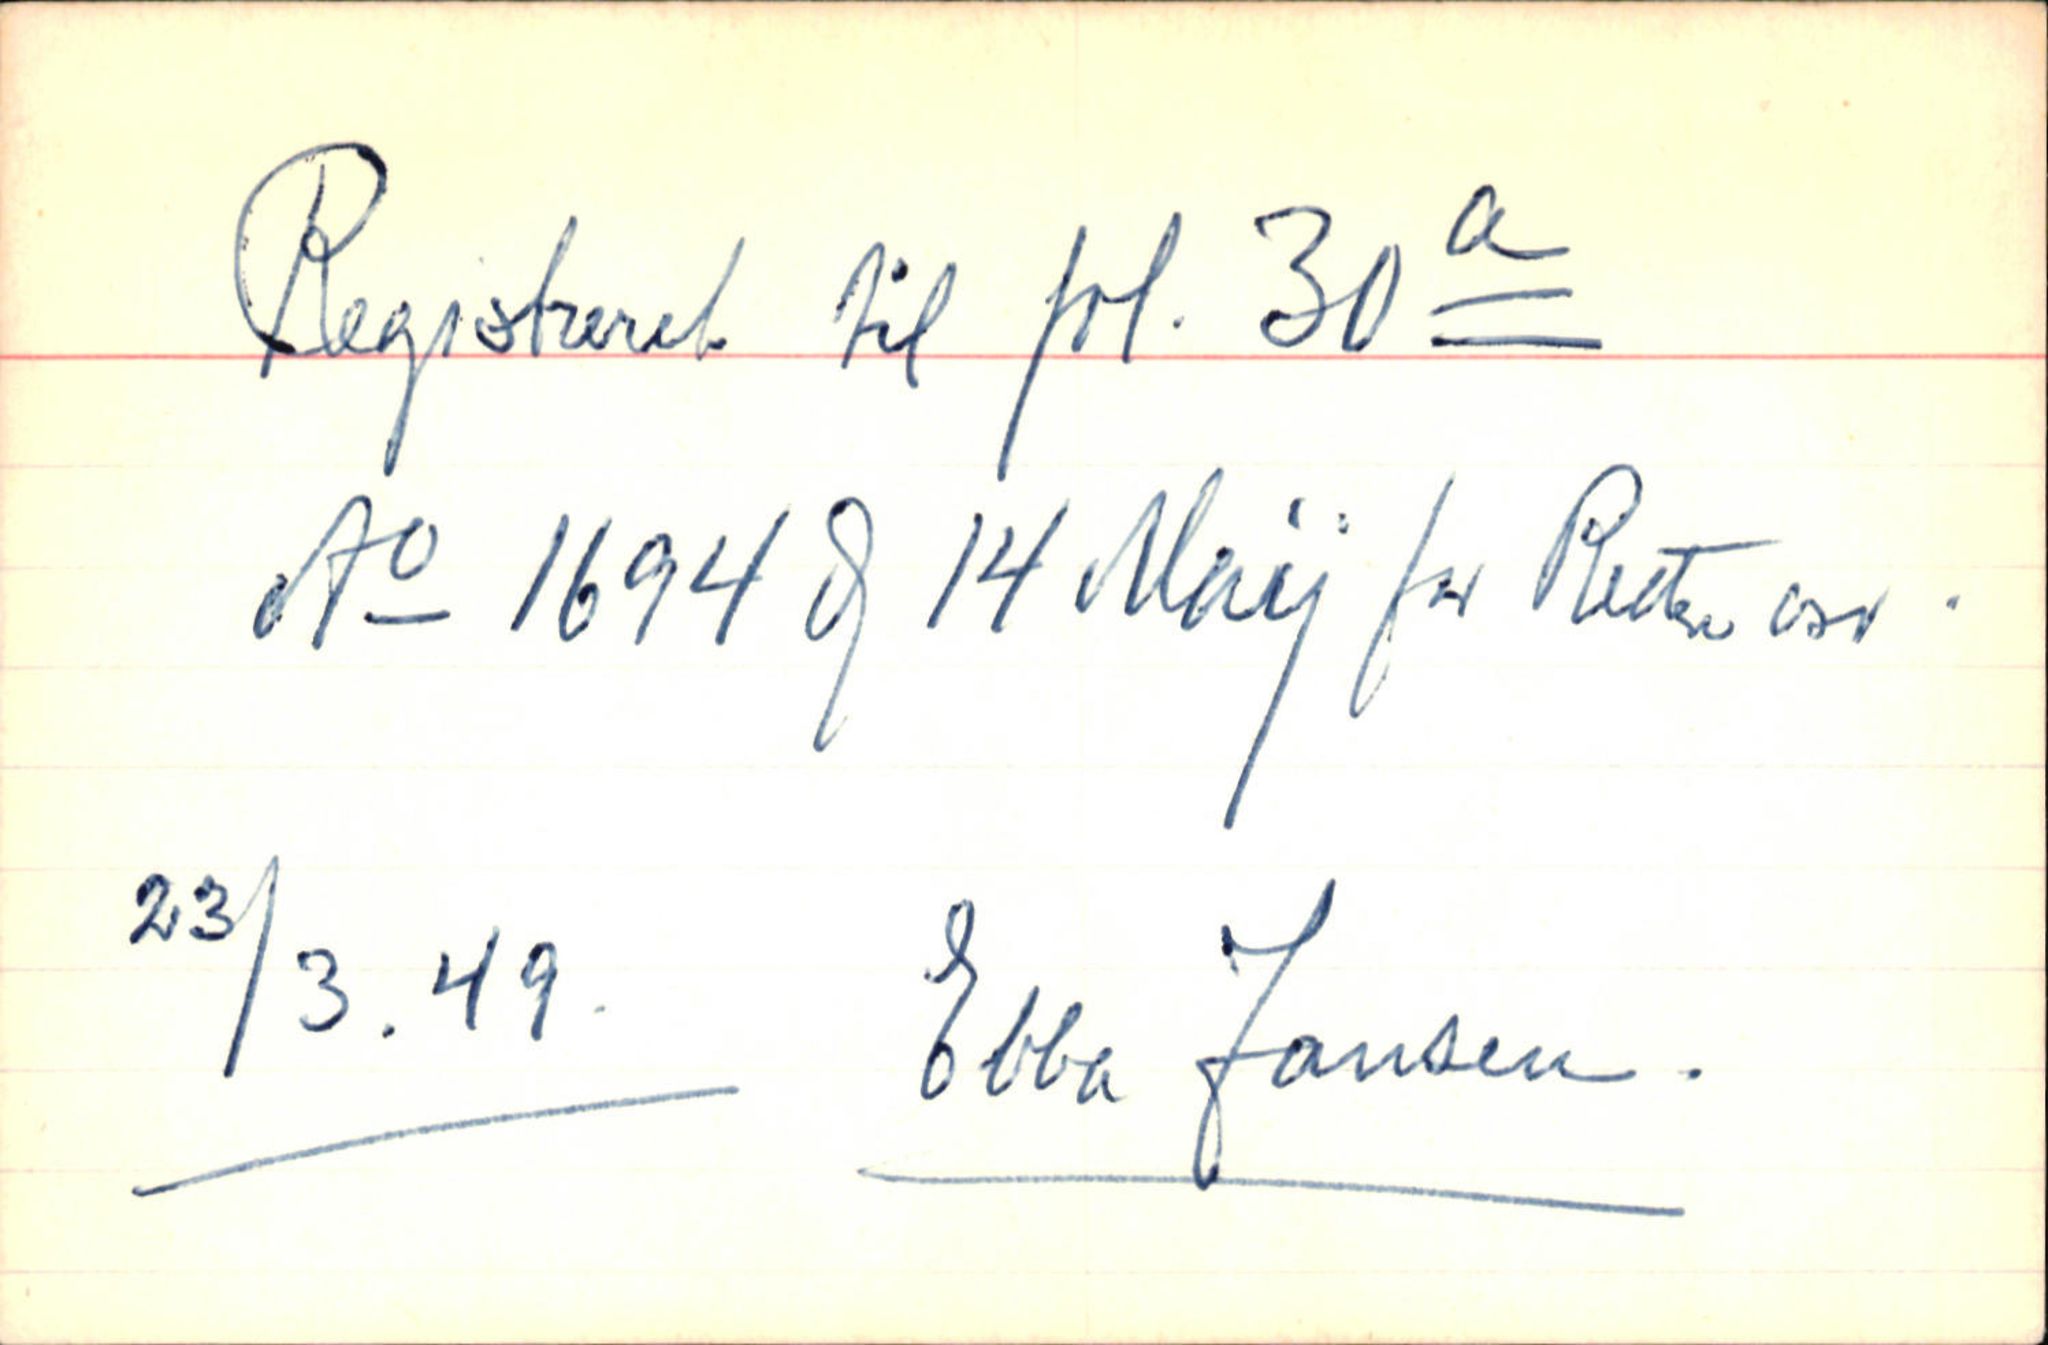 Registreret til fol. 30a
Ao 1694 d 14 Maij for Retten osv.
23/3.49.
Ebba Jansen.